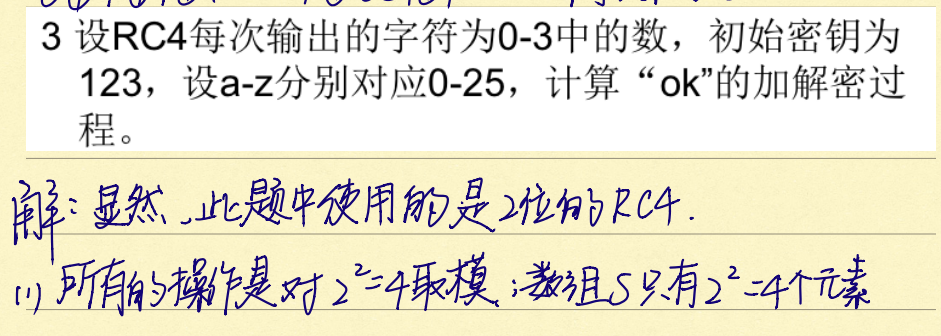 3 设RC4每次输出的字符为0-3中的数，初始密钥为
123，设a-z分别对应0-25，计算“ok”的加解密过
程。
解：显然，此题中使用的是2位的RC4.
(1) 所有的操作是对2²=4取模；数组S只有2²=4个元素